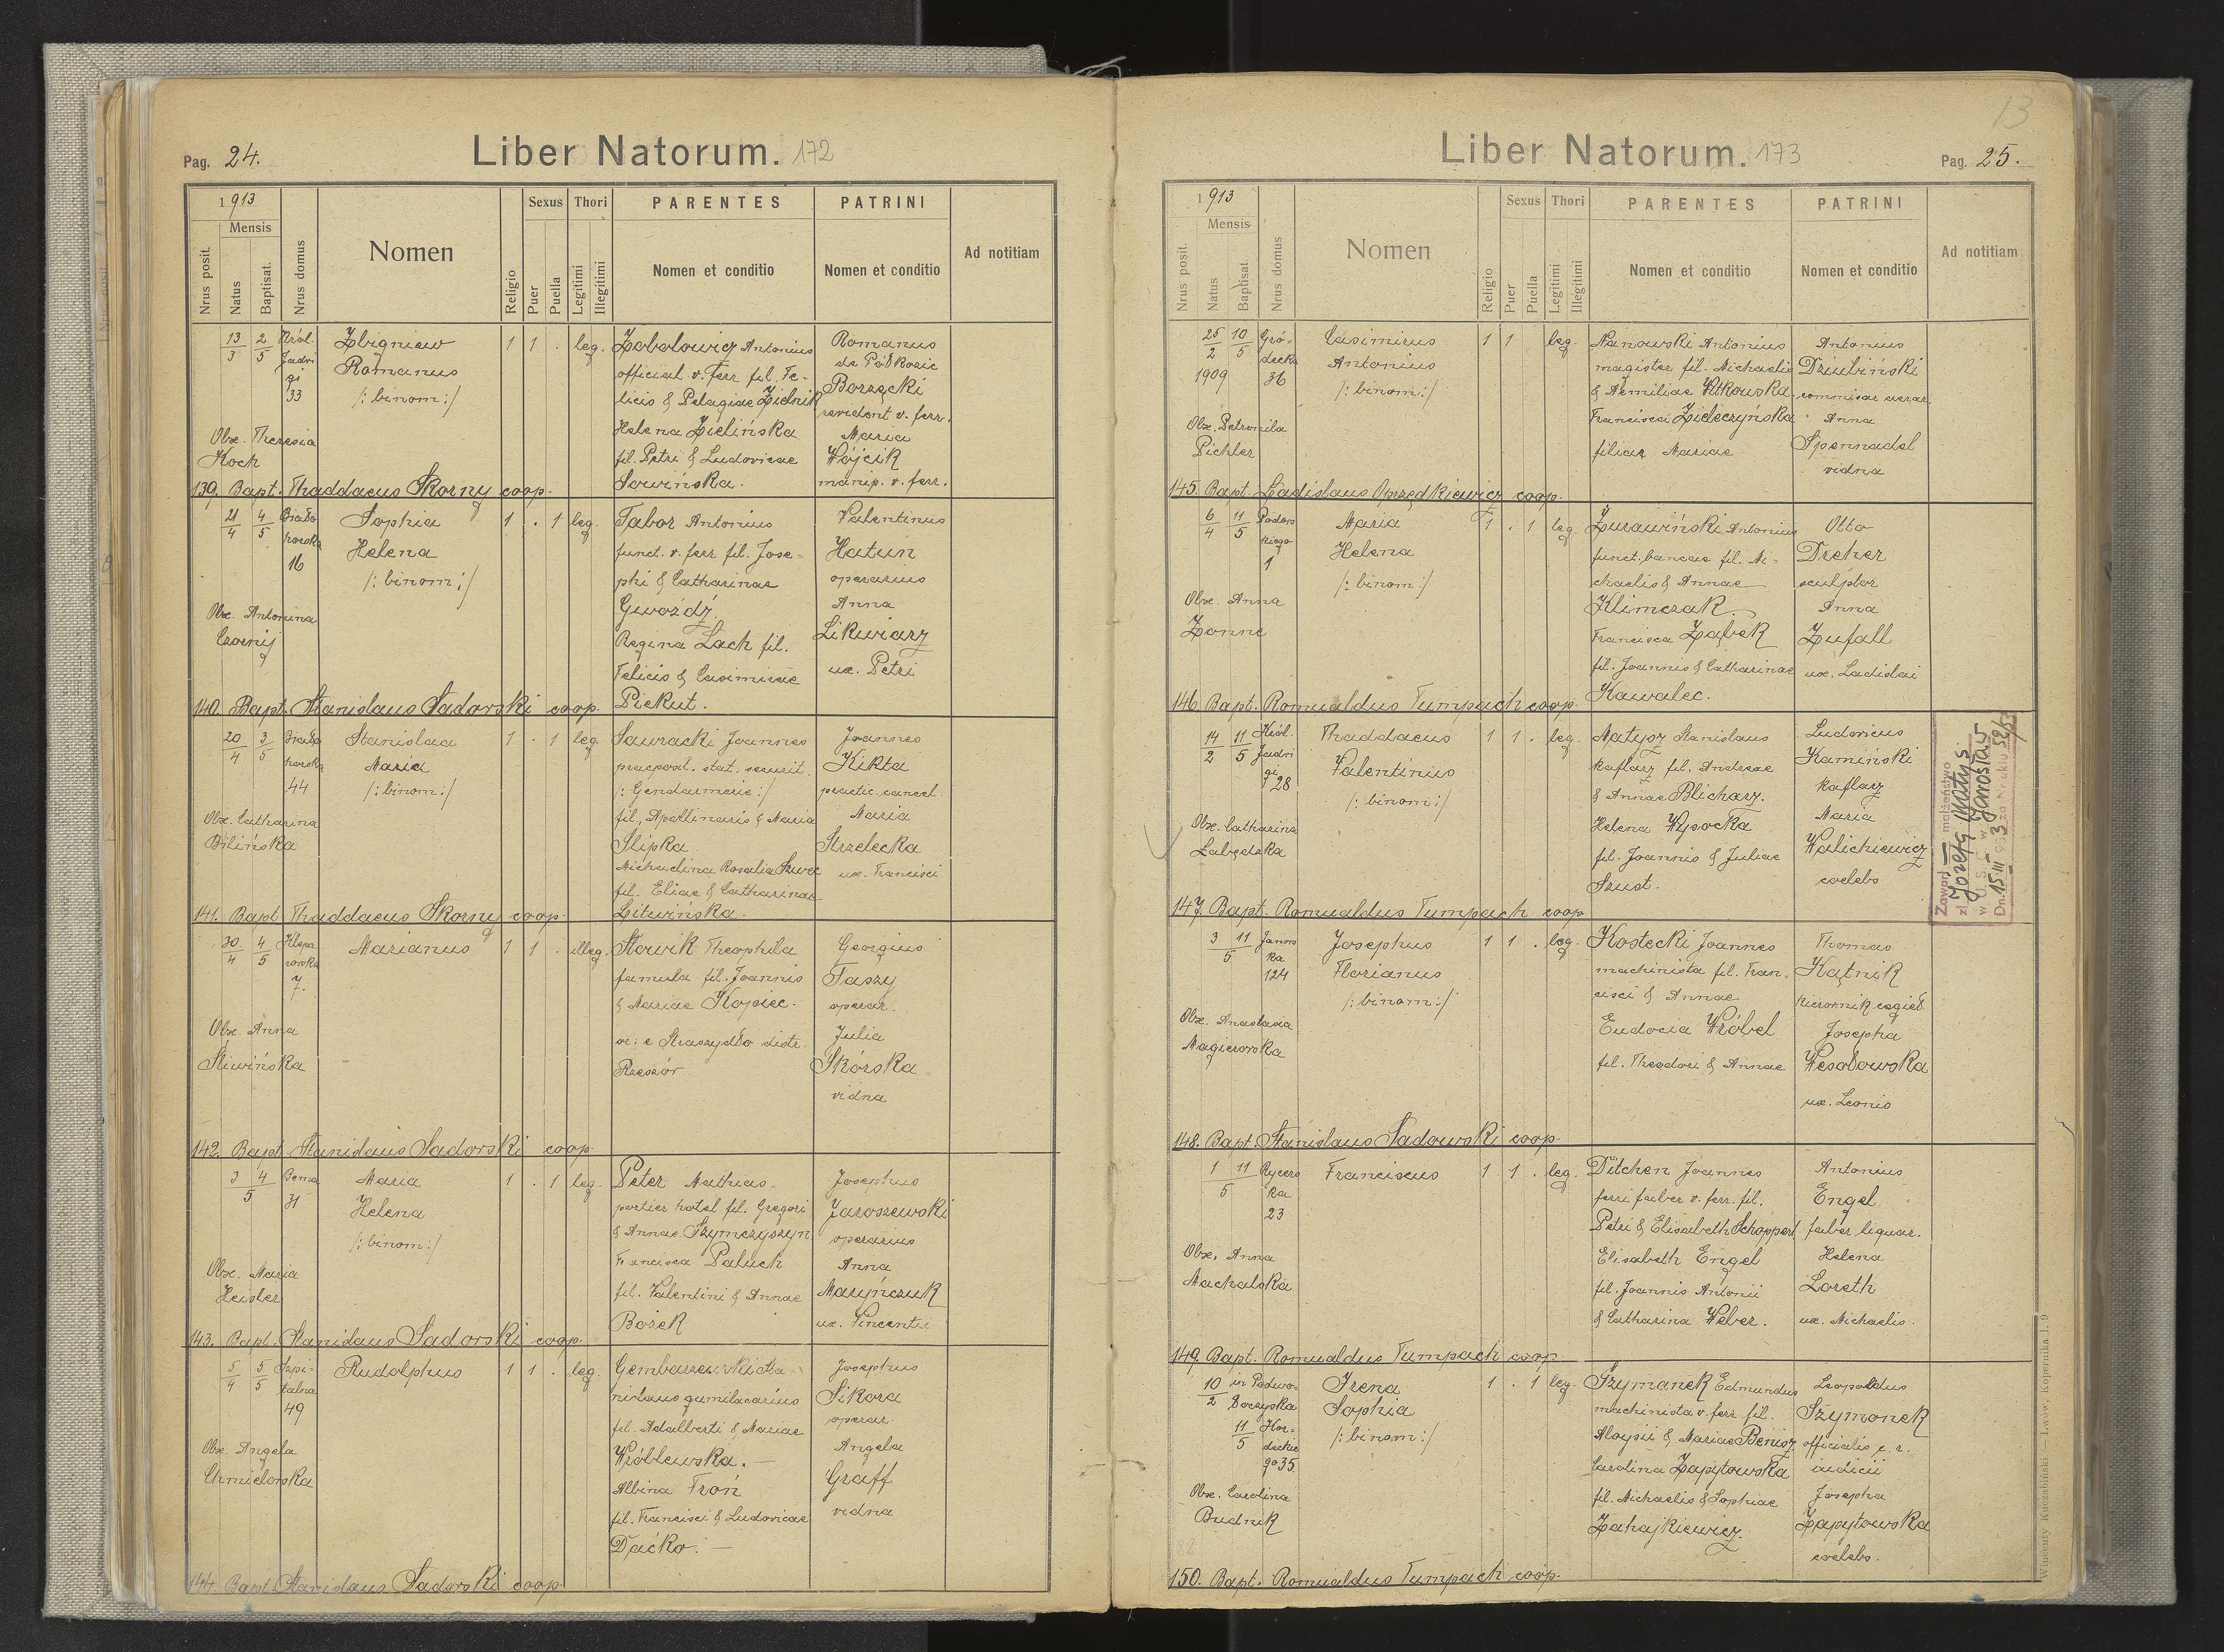 Pag. 24.
Liber Natorum. 172
1913
Mensis
Nrus posit.
Natus
Baptisat.
Nrus domus
Nomen
Religio
Sexus
Puer
Puella
Thori
Legitimi
Illegitimi
PARENTES
Nomen et conditio
PATRINI
Nomen et conditio
Ad notitiam
13/3 2/5 Król. Jadwi gi 33
Zbigniew
Romanus
/: binom :/
1 1 . leg.
Antonius
official v. ferr fil. Fe-
licis & Pelagiae Zielnik
Helena Zielińska
fil. Petri & Ludovicae
Sowińska.
Romanus
Borzęcki
revident v. ferr.
Maria
Wójcik
manip. v. ferr.
Obx. Theresia
Koch
139. Bapt. Thaddaeus Skorny coop.
21/4 4/5 16
Sophia
Helena
/: binom :/
1 . 1 leg.
Tabor Antonius
funct. v. ferr fil. Jose-
phi & Catharinae
Gwoźdź
Regina Lach fil.
Felicis & Casimirae
Piekut.
Valentinus
Hatun
operarius
Anna
Likwiarz
ux. Petri
Obx. Antonina
Czornij
140. Bapt. Stanislaus Sadowski coop.
20/4 3/5 44
Stanislaa
Maria
/: binom :/
1 . 1 leg.
Sawracki Joannes
praeposit. stat. securit.
/: Gendarmerie :/
fil. Apollinaris & Maria
Slipka
Michalina Rosalia Szwec
fil. Eliae & Catharinae
Litwińska.
Joannes
Kikta
practic. cancel.
Maria
Strzelecka
ux. Francisci
Obx. Catharina
Bilińska
141. Bapt. Thaddaeus Skorny coop.
30/4 4/5 Klepa rowska 7.
Marianus
1 1 . illeg.
Słowik Theophila
famula fil. Joannis
& Mariae Kopiec.
or: e Straszydło distr.
Rzeszów
Georgius
Taszy
operar.
Julia
Skórska
vidua
Obx. Anna
Śliwińska
142. Bapt. Stanislaus Sadowski coop.
3 4/5 Bema 31
Maria
Helena
/: binom :/
1 . 1 leg.
Peter Mathias
portier hotel fil. Gregori
& Annae Szymczyszyn
Francisca Paluch
fil. Valentini & Annae
Bożek
Josephus
Jaroszewski
operarius
Anna
Maryńczuk
ux. Vincentii
Obx. Maria
Heisler
143. Bapt. Stanislaus Sadowski coop.
5/4 5/5 Szpi- talna 49
Rudolphus
1 1 . leg.
Gembarzewski Sta-
nislaus
fil. Adalberti & Mariae
Wróblewska. —
Albina Troń
fil. Francisci & Ludovicae
Daćko. —
Josephus
Sikora
operar.
Angela
Graff
vidua
Obx. Angela
Chmielowska
144. Bapt. Stanislaus Sadowski coop.
13
Liber Natorum. 173
Pag. 25.
1913
Mensis
Nrus posit.
Natus
Baptisat.
Nrus domus
Nomen
Religio
Sexus
Puer
Puella
Thori
Legitimi
Illegitimi
PARENTES
Nomen et conditio
PATRINI
Nomen et conditio
Ad notitiam
25/2 1909 10/5 Gró- decka 36
Casimirus
Antonius
/: binom :/
1 1 leg.
Nanowski Antonius
magister fil. Michaelis
& Aemiliae Witkowska
Francisca Zieleczyńska
filiae Mariae
Antonius
Dziubiński
commisar aerar.
Anna
Spennadel
vidua
Obx. Petronila
Pichler
145. Bapt. Ladislaus Oprzędkiewicz coop.
6/4 11/5 1
Maria
Helena
/: binom :/
1 . 1 leg.
Żurawiński Antonius
funct. bancae fil. Mi-
chaelis & Annae
Klimczak.
Francisca Ząbek
fil. Joannis & Catharinae
Kawalec.
Otto
Dreher
sculptor
Anna
Zufall
ux. Ladislai
Obx. Anna
Zonne
146. Bapt. Romualdus Tumpach coop.
14/2 11/5 Król. Jadwi gi 28
Thaddaeus
Valentinus
/: binom :/
1 1 . leg.
Matysz Stanislaus
kaflarz fil. Andreae
& Annae Blicharz.
Helena Wysocka
fil. Joannis & Juliae
Szust.
Ludovicus
Kamiński
kaflarz
Maria
Walichiewicz
coelebs
Zawarł małżeństwo
z Józefą Matyś
w U.S.C. w Jarosław
Dn. 15 III 1953 za Nr aktu 52/53
Obx. Catharina
Łabędzka
147. Bapt. Romualdus Tumpach coop
3 11/5 Janow ka 124
Josephus
Florianus
/: binom :/
1 1 . leg.
Kostecki Joannes
machinista fil. Fran-
cisci & Annae
Eudocia Wróbel
fil. Theodori & Annae
Thomas
Kątnik
kierownik cegieł.
Josepha
Wesołowska
ux. Leonis
Obx. Anastasia
Magierowska
148. Bapt. Stanislaus Sadowski coop.
1 11/5 Rycers ka 23
Franciscus
1 1 . leg.
Ditchen Joannes
ferri faber v. ferr. fil.
Petri & Elisabeth Schoppert
Elisabeth Engel
fil. Joannis Antonii
& Catharina Weber.
Antonius
Engel
faber lignar.
Helena
Loreth
ux. Michaelis.
Obx. Anna
Machalska
149. Bapt. Romualdus Tumpach coop
10/2 in Podwo- łoczyska 11/5 35.
Irena
Sophia
/: binom :/
1 . 1 leg.
Szymanek Edmundus
machinista v. ferr. fil.
Aloysii & Mariae Benisz
Carolina Zapytowska
fil. Michaelis & Sophiae
Zahajkiewicz.
Leopoldus
Szymonek
officialis c. r.
iudicii
Josepha
Zapytowska
coelebs.
Obx. Carolina
Budnik
150. Bapt. Romualdus Tumpach coop.
Wincenty Kuczabiński — Lwów, Kopernika l. 9